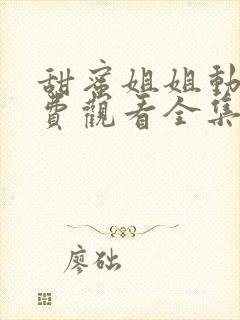 甜蜜姐姐動
費觀看全集
廖础